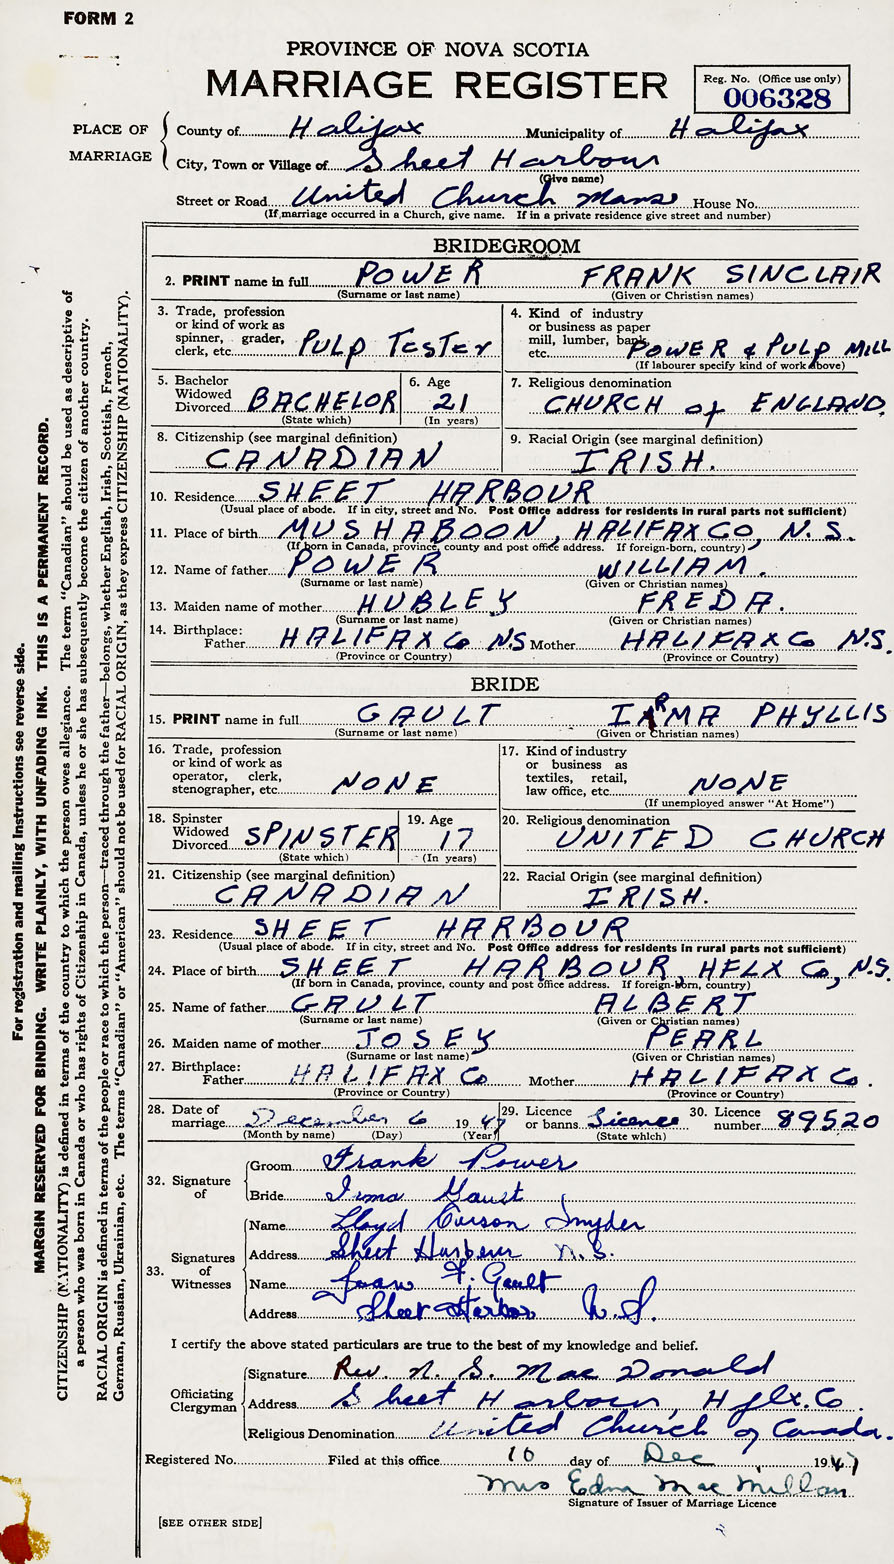 FORM 2
PROVINCE OF NOVA SCOTIA
MARRIAGE REGISTER
Reg. No. (Office use only)
006328
PLACE OF MARRIAGE
County of Halifax Municipality of Halifax
City, Town or Village of Sheet Harbour
(Give name)
Street or Road United Church Manse House No.
(If marriage occurred in a Church, give name. If in a private residence give street and number)
BRIDEGROOM
2. PRINT name in full POWER FRANK SINCLAIR
(Surname or last name) (Given or Christian names)
3. Trade, profession or kind of work as spinner, grader, clerk, etc. PULP TESTER
4. Kind of industry or business as paper mill, lumber, bank, etc. POWER & PULP MILL
(If labourer specify kind of work above)
5. Bachelor Widowed Divorced BACHELOR
(State which)
6. Age 21
(In years)
7. Religious denomination
CHURCH of ENGLAND
8. Citizenship (see marginal definition)
CANADIAN
9. Racial Origin (see marginal definition)
IRISH.
10. Residence SHEET HARBOUR
(Usual place of abode. If in city, street and No. Post Office address for residents in rural parts not sufficient)
11. Place of birth MUSHABOON, HALIFAX CO, N.S.
(If born in Canada, province, county and post office address. If foreign-born, country)
12. Name of father POWER WILLIAM.
(Surname or last name) (Given or Christian names)
13. Maiden name of mother HUBLEY FREDA.
(Surname or last name) (Given or Christian names)
14. Birthplace:
Father HALIFAX Co N.S Mother HALIFAX Co N.S.
(Province or Country) (Province or Country)
BRIDE
15. PRINT name in full GAULT IRMA PHYLLIS
(Surname or last name) (Given or Christian names)
16. Trade, profession or kind of work as operator, clerk, stenographer, etc. NONE
17. Kind of industry or business as textiles, retail, law office, etc. NONE
(If unemployed answer "At Home")
18. Spinster Widowed Divorced SPINSTER
(State which)
19. Age 17
(In years)
20. Religious denomination
UNITED CHURCH
21. Citizenship (see marginal definition)
CANADIAN
22. Racial Origin (see marginal definition)
IRISH.
23. Residence SHEET HARBOUR
(Usual place of abode. If in city, street and No. Post Office address for residents in rural parts not sufficient)
24. Place of birth SHEET HARBOUR, HFLX Co, N.S.
(If born in Canada, province, county and post office address. If foreign-born, country)
25. Name of father GAULT ALBERT
(Surname or last name) (Given or Christian names)
26. Maiden name of mother JOSEY PEARL
(Surname or last name) (Given or Christian names)
27. Birthplace:
Father HALIFAX Co Mother HALIFAX Co.
(Province or Country) (Province or Country)
28. Date of marriage December 6 1947
(Month by name) (Day) (Year)
29. Licence or banns Licence
(State which)
30. Licence number 89520
32. Signature of
Groom Frank Power
Bride Irma Gault
33. Signatures of Witnesses
Name Lloyd Curson Snyder
Address Sheet Harbour N.S.
Name Joan F. Gault
Address Sheet Harbor N.S.
I certify the above stated particulars are true to the best of my knowledge and belief.
Officiating Clergyman
Signature Rev. N. S. Mac Donald
Address Sheet Harbour, Hflx. Co.
Religious Denomination United Church of Canada.
Registered No. Filed at this office 10 day of Dec 1947
Mrs Edna MacMillan
Signature of Issuer of Marriage Licence
[SEE OTHER SIDE]
For registration and mailing instructions see reverse side.
MARGIN RESERVED FOR BINDING. WRITE PLAINLY, WITH UNFADING INK. THIS IS A PERMANENT RECORD.
CITIZENSHIP (NATIONALITY) is defined in terms of the country to which the person owes allegiance. The term "Canadian" should be used as descriptive of
a person who was born in Canada or who has rights of Citizenship in Canada, unless he or she has subsequently become the citizen of another country.
RACIAL ORIGIN is defined in terms of the people or race to which the person—traced through the father—belongs, whether English, Irish, Scottish, French,
German, Russian, Ukrainian, etc. The terms "Canadian" or "American" should not be used for RACIAL ORIGIN, as they express CITIZENSHIP (NATIONALITY).